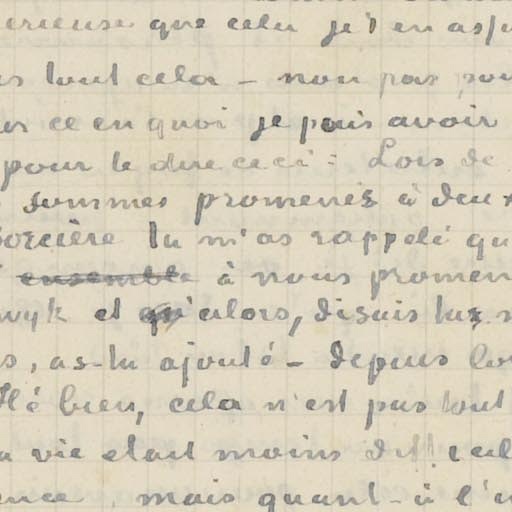 erieuse que cela je t'en assu
us tout cela – non pas pou
ur ce en quoi je puis avoir
pour te dire ceci : Lors de
sommes promenés à deux
sorcière tu m'as rappelé qu
ensemble à nous promen
wyk et qu'alors, disais tu, n
s, as-tu ajouté – depuis lo
Hé bien, cela n'est pas tout
a vie était moins difficil
ence, mais quant-à l'